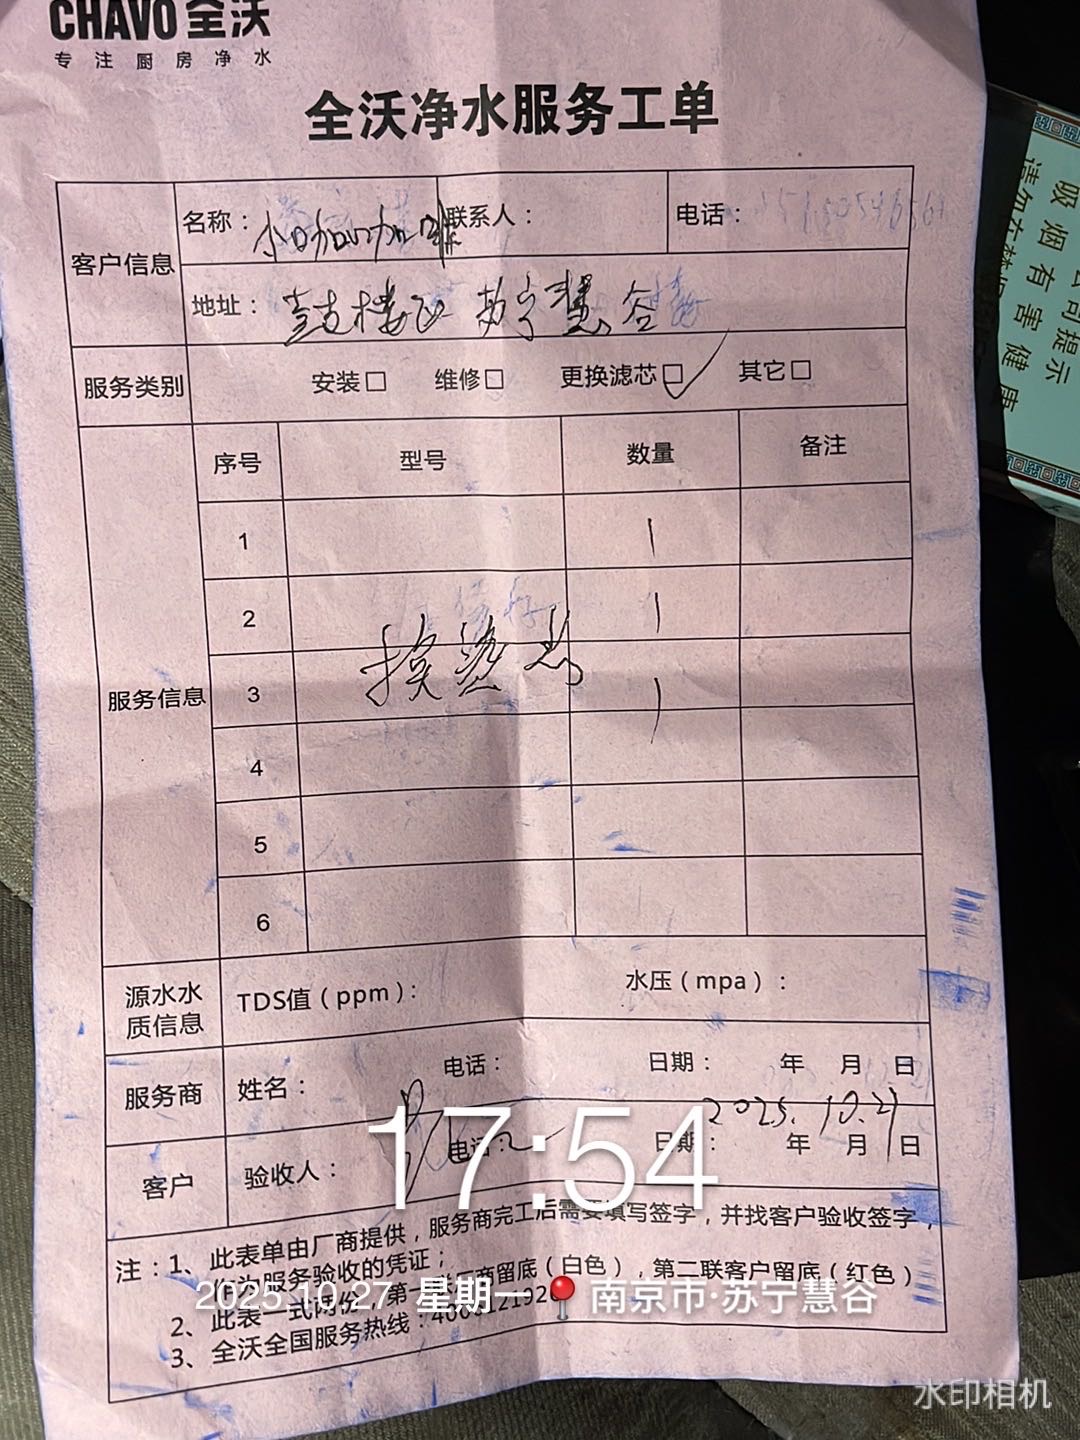 CHAVO 全沃
专注厨房净水
全沃净水服务工单
客户信息
名称：小咖咖啡 联系人： 电话：
地址：鼓楼区 苏宁慧谷
服务类别 安装□ 维修□ 更换滤芯□✓ 其它□
服务信息
序号 型号 数量 备注
1 1
2 1
换滤芯
3 1
4
5
6
源水水质信息 TDS值（ppm）： 水压（mpa）：
服务商 姓名： 电话： 日期： 年 月 日
2025.10.27
客户 验收人： 电话： 日期： 年 月 日
17:54
注：1、此表单由厂商提供，服务商完工后需要填写签字，并找客户验收签字，
作为服务验收的凭证；
2、此表一式两份，第一联厂商留底（白色），第二联客户留底（红色）
3、全沃全国服务热线：
2025.10.27 星期一 南京市·苏宁慧谷
水印相机
公司提示
吸烟有害健康